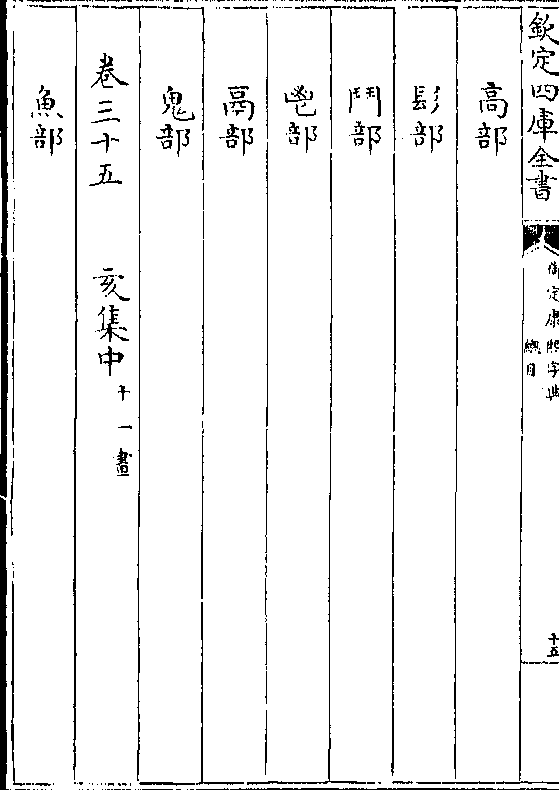 欽定四庫全書
御定康熙字典
總目
十五
高部
髟部
鬥部
鬯部
鬲部
鬼部
卷三十五　亥集中十一畫
魚部